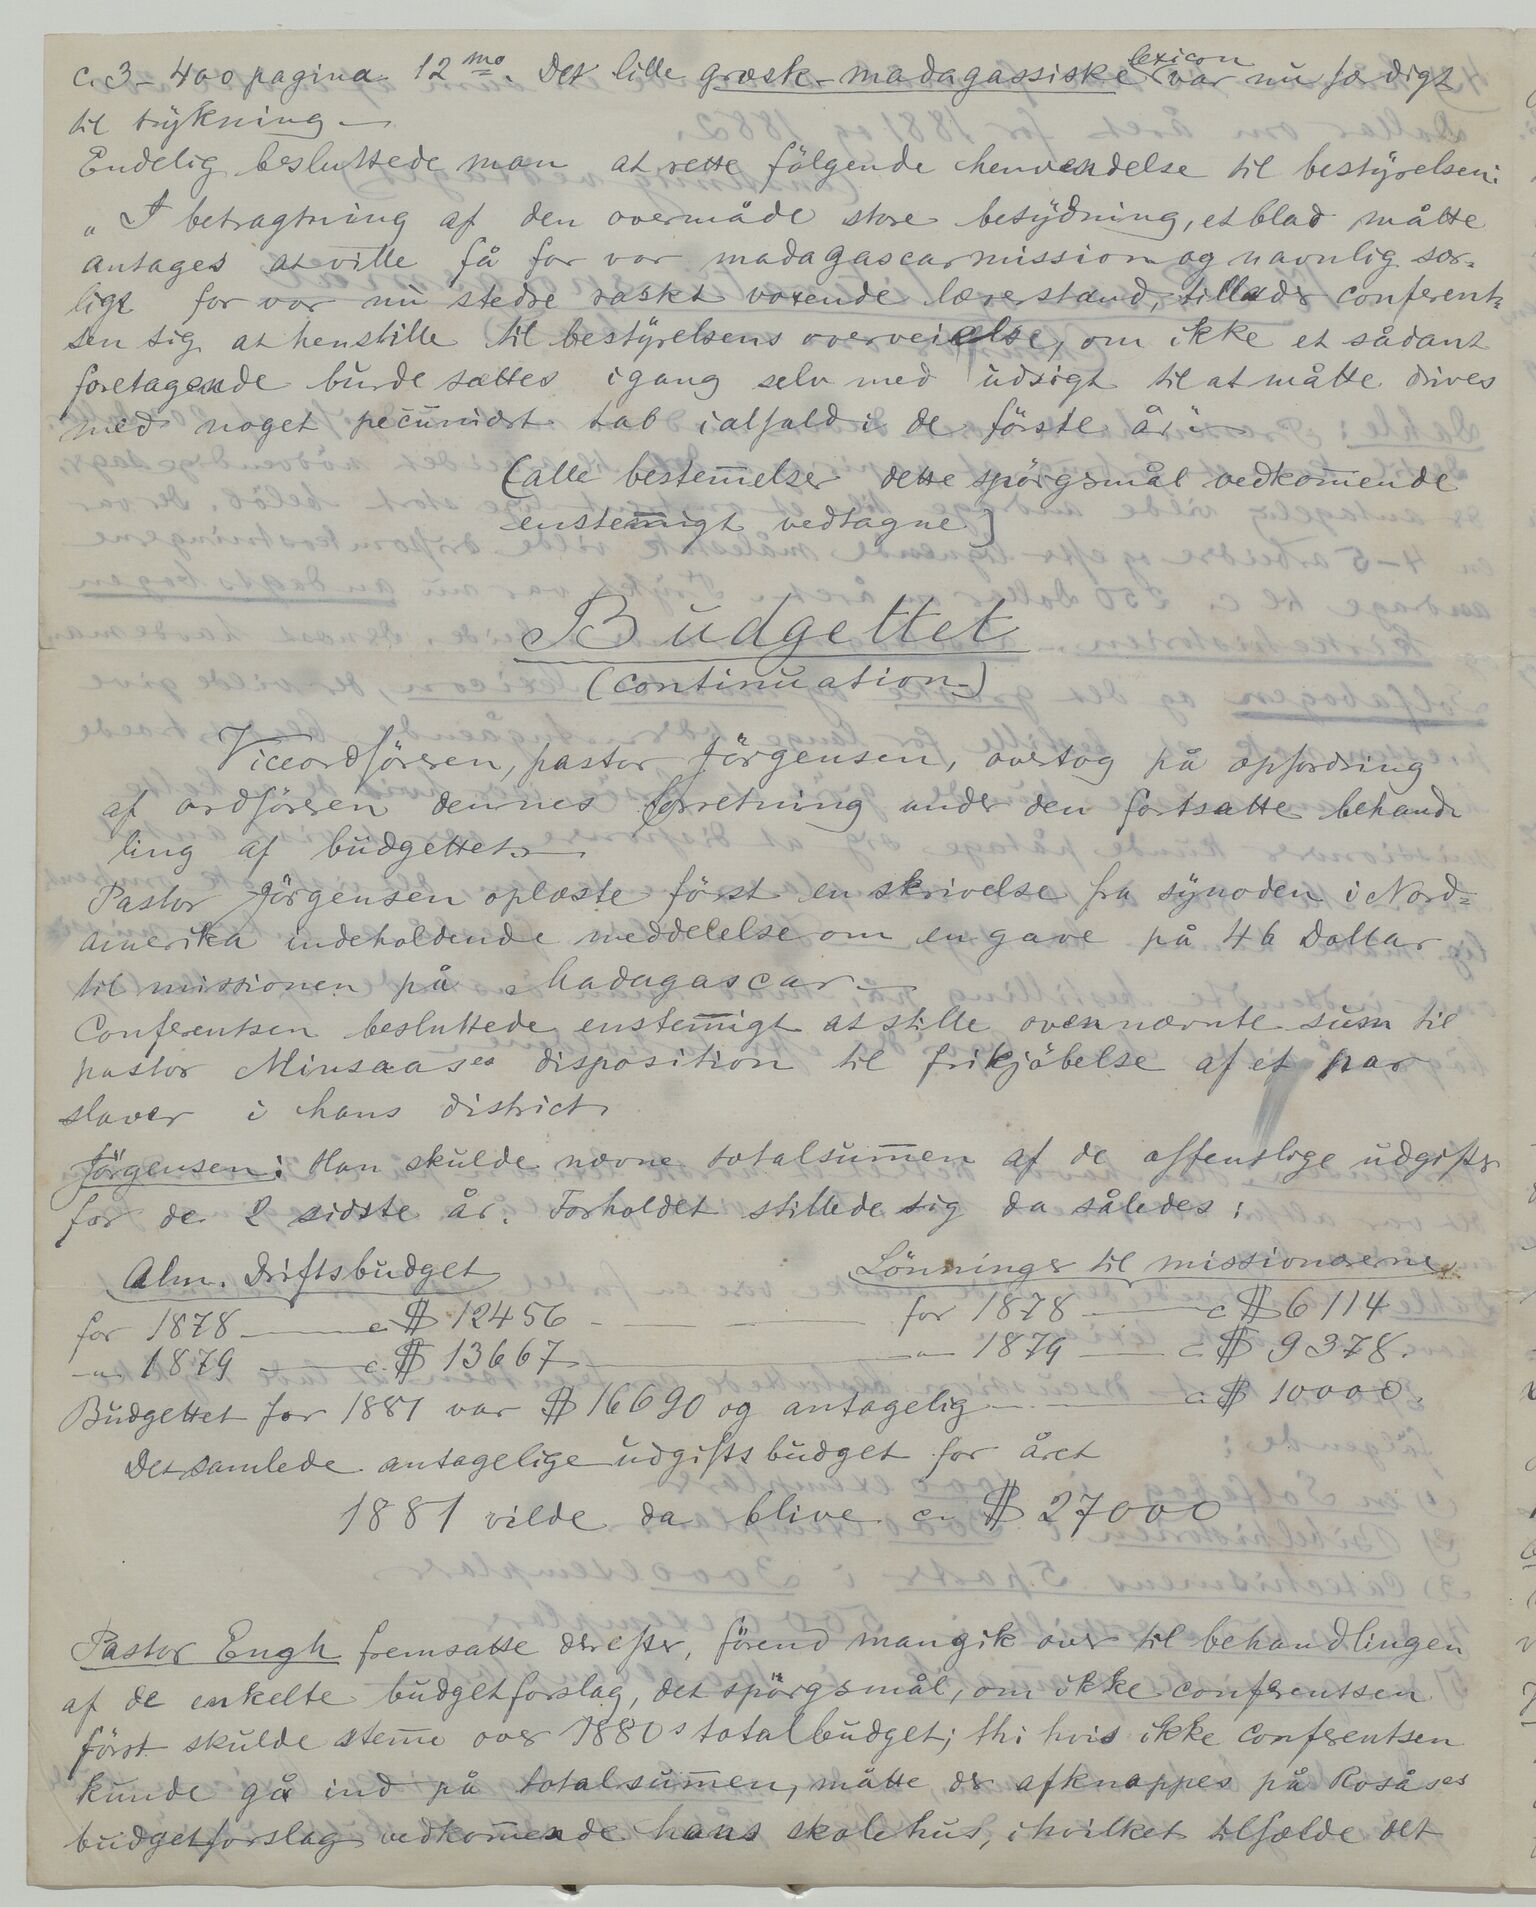 c. 3-400 pagina 12mo. Det lille græsk-madagassiske lexicon var nu færdigt
til trykning.—
Endelig besluttede man at rette følgende henvendelse til bestyrelsen:
"I betragtning af den overmåde store betydning, et blad måtte
antages at ville få for vor madagascarmission og navnlig sær-
ligt for vor nu stedse raskt voxende lærerstand, tillader conferent-
sen sig at henstille til bestyrelsens overveielse, om ikke et sådant
foretagende burde sættes igang selv med udsigt til at måtte drives
med noget pecuniært tab ialfald i de første år".—
(alle bestem̅elser dette spörgsmål vedkom̅ende
enstem̅igt vedtagne)
Budgettet
(continuation)
Viceordföreren, pastor Jörgensen, overtog på opfordring
af ordföreren dennes forretning under den fortsatte behand-
ling af budgettet.—
Pastor Jörgensen oplæste först en skrivelse fra synoden i Nord-
amerika indeholdende meddelelse om en gave på 46 Dollar
til missionen på Madagascar.—
Conferentsen besluttede enstem̅igt at stille ovennævnte sum til
pastor Minsaas's disposition til frikjöbelse af et par
slaver i hans district.
Jörgensen: Han skulde nævne totalsum̅en af de offentlige udgifter
for de 2 sidste år. Forholdet stillede sig da således:
Alm. Driftsbudget Lönninger til missionærerne
for 1878 — c $ 12456 — for 1878 — c $ 6114
" 1879 — c. $ 13667 — " 1879 — c $ 9378.
Budgettet for 1881 var $ 16690 og antagelig — c. $ 10000.
Det samlede antagelige udgiftsbudget for året
1881 vilde da blive c. $ 27000
Pastor Engh fremsatte derefter, förend man gik over til behandlingen
af de enkelte budgetforslag, det spörgsmål, om ikke conferentsen
först skulde stem̅e over 1880s totalbudget; thi hvis ikke conferentsen
kunde gå ind på totalsum̅en, måtte der afknappes på Rosåses
budgetforslag vedkom̅ende hans skolehus, i hvilket tilfælde det